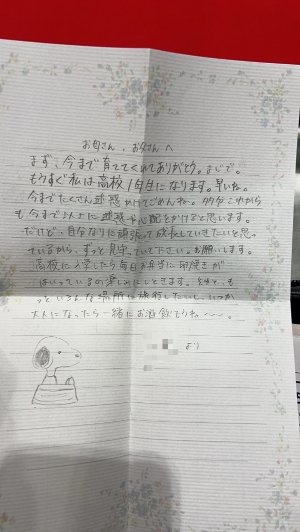 お母さん、お父さんへ
まず、今まで育ててくれてありがとう。まじで。
もうすぐ私は高校1年生になります。早いね。
今までたくさん迷惑かけてごめんね。多分これから
も今まで以上に迷惑や心配をかけると思います。
だけど、自分なりに頑張って成長していきたいと思っ
ているから、ずっと見守っていて下さい。お願いします。
高校に入学したら毎日お弁当に卵焼きが
はいっているの楽しみにしときます。それと、も
っといろんな場所に旅行したいし、いつか
大人になったら一緒にお酒飲もうね〜〜。
より